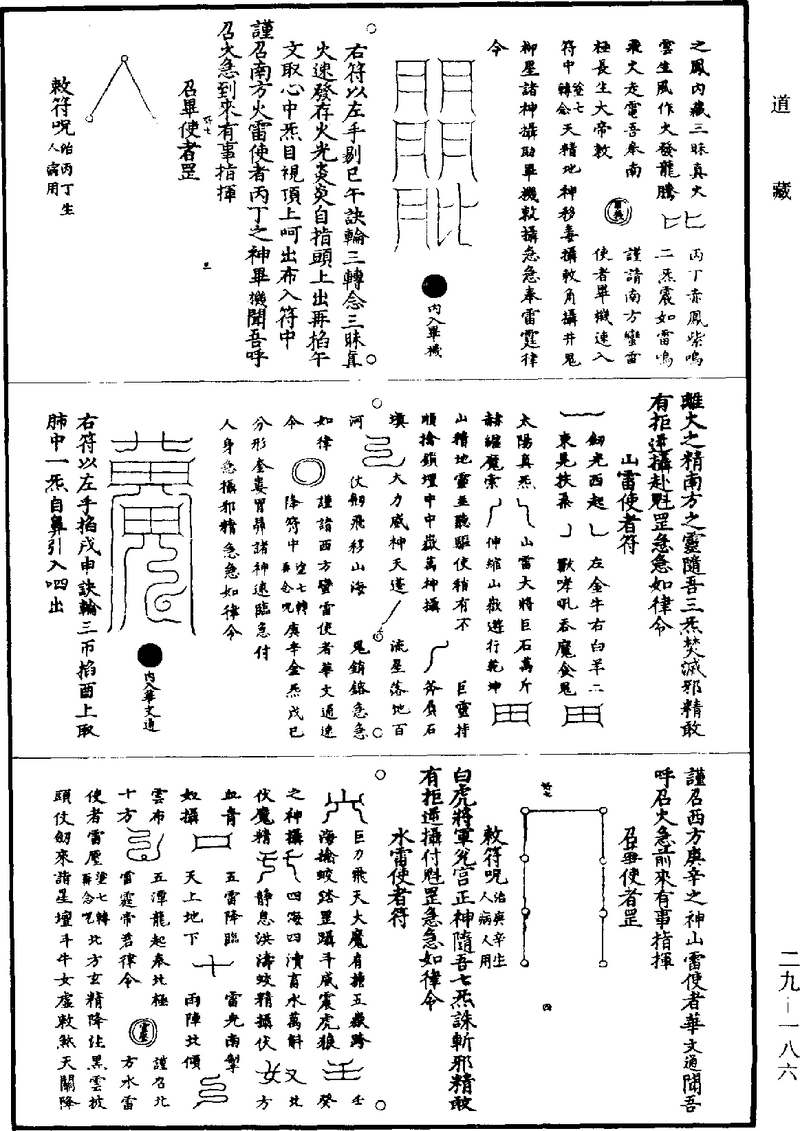 道藏
之鳳內藏三昧真火
丙丁赤鳳紫鳴
雲生風作火發龍騰
二炁震如雷鳴
飛火走電吾奉南
謹請南方蠻雷
極長生大帝敕
使者畢機速入
符中 塗七轉念 天精地神移毒攝敕角攝井鬼
柳星諸神攝助畢機敕攝急急奉雷霆律
令
內入畢機
右符以左手剔巳午訣輪三轉念三昧真
火速發存火光炎炎自指頭上出再掐午
文取心中炁目視頂上呵出布入符中
謹召南方火雷使者丙丁之神畢機聞吾呼
召火急到來有事指揮
召畢使者罡
敕符呪 治丙丁生人病用
三
離火之精南方之靈隨吾三炁焚滅邪精敢
有拒逆攝赴魁罡急急如律令
山雷使者符
劒光西起
左金牛右白羊二
東晃扶桑
獸哮吼吞魔食鬼
太陽真炁
山雷大將巨石萬斤
赫縮魔索
伸縮山嶽遊行乾坤
山精地靈並聽驅使稍有不
巨靈持
順擒鎖壇中中嶽萬神攝
斧㞕石
填
大力威神天蓬
流星落地百
河
仗劒飛移山海
鬼銷鎔急急
如律
謹請西方蠻雷使者華文通速
令
降符中 塗七轉再念呪 庚辛金炁戊己
分形奎婁胃昴諸神速臨急付
人身急攝邪精急急如律令
內入華文通
右符以左手掐戌申訣輪三帀掐酉上取
肺中一炁自鼻引入呬出
謹召西方庚辛之神山雷使者華文通聞吾
呼召火急前來有事指揮
召畢使者罡
敕符呪 治庚辛生人病人用
四
白虎將軍兌宮正神隨吾七炁誅斬邪精敢
有拒逆攝付魁罡急急如律令
水雷使者符
巨力飛天大魔有擔五嶽跨
壬
海擒蛟踏罡躡斗威震虎狼
癸
之神攝
四海四瀆畜水萬斛
北
伏魔精
靜息洪濤蛟精攝伏
方
血膏
五雷降臨
雷光南掣
如攝
天上地下
雨陣北傾
雲布
五潭龍起奉北極
謹召北
十方
雷霆帝君律令
方水雷
使者雷壓 塗七轉再念呪 北方玄精降注黑雲披
頭仗劒來詣星壇斗牛女虛敕煞天關降
二九—一八六